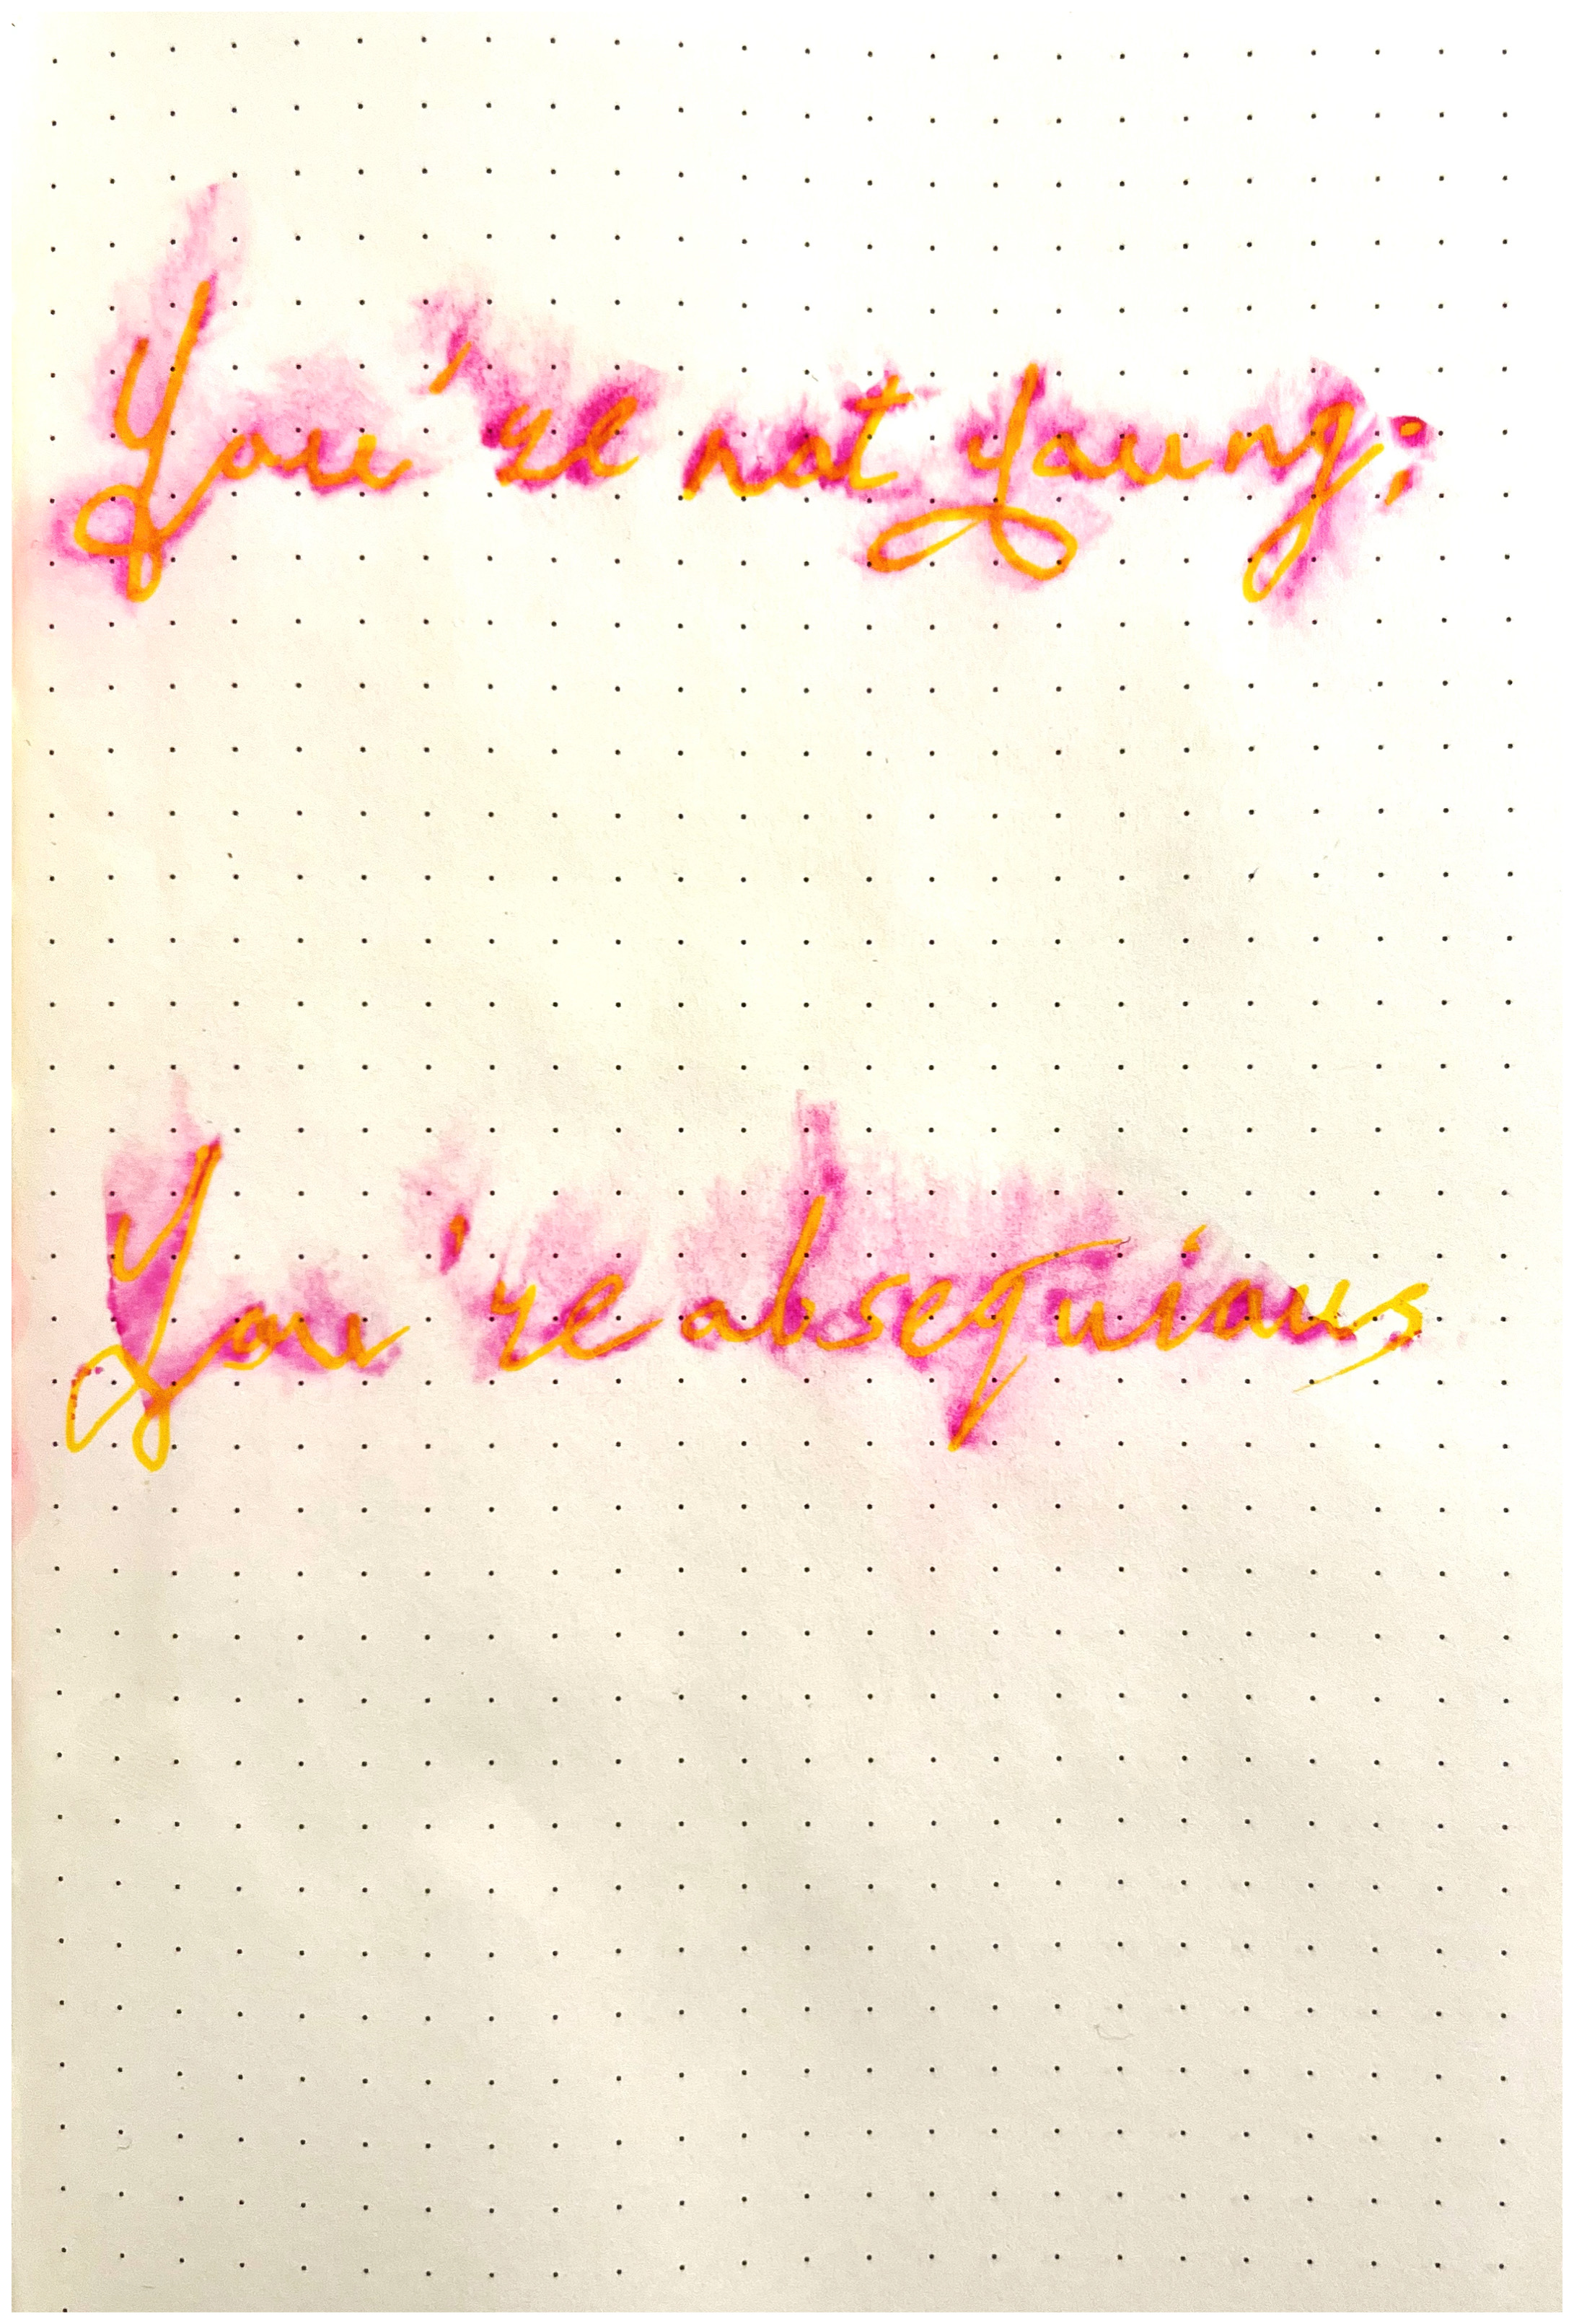 You're not young;
You're obsequious